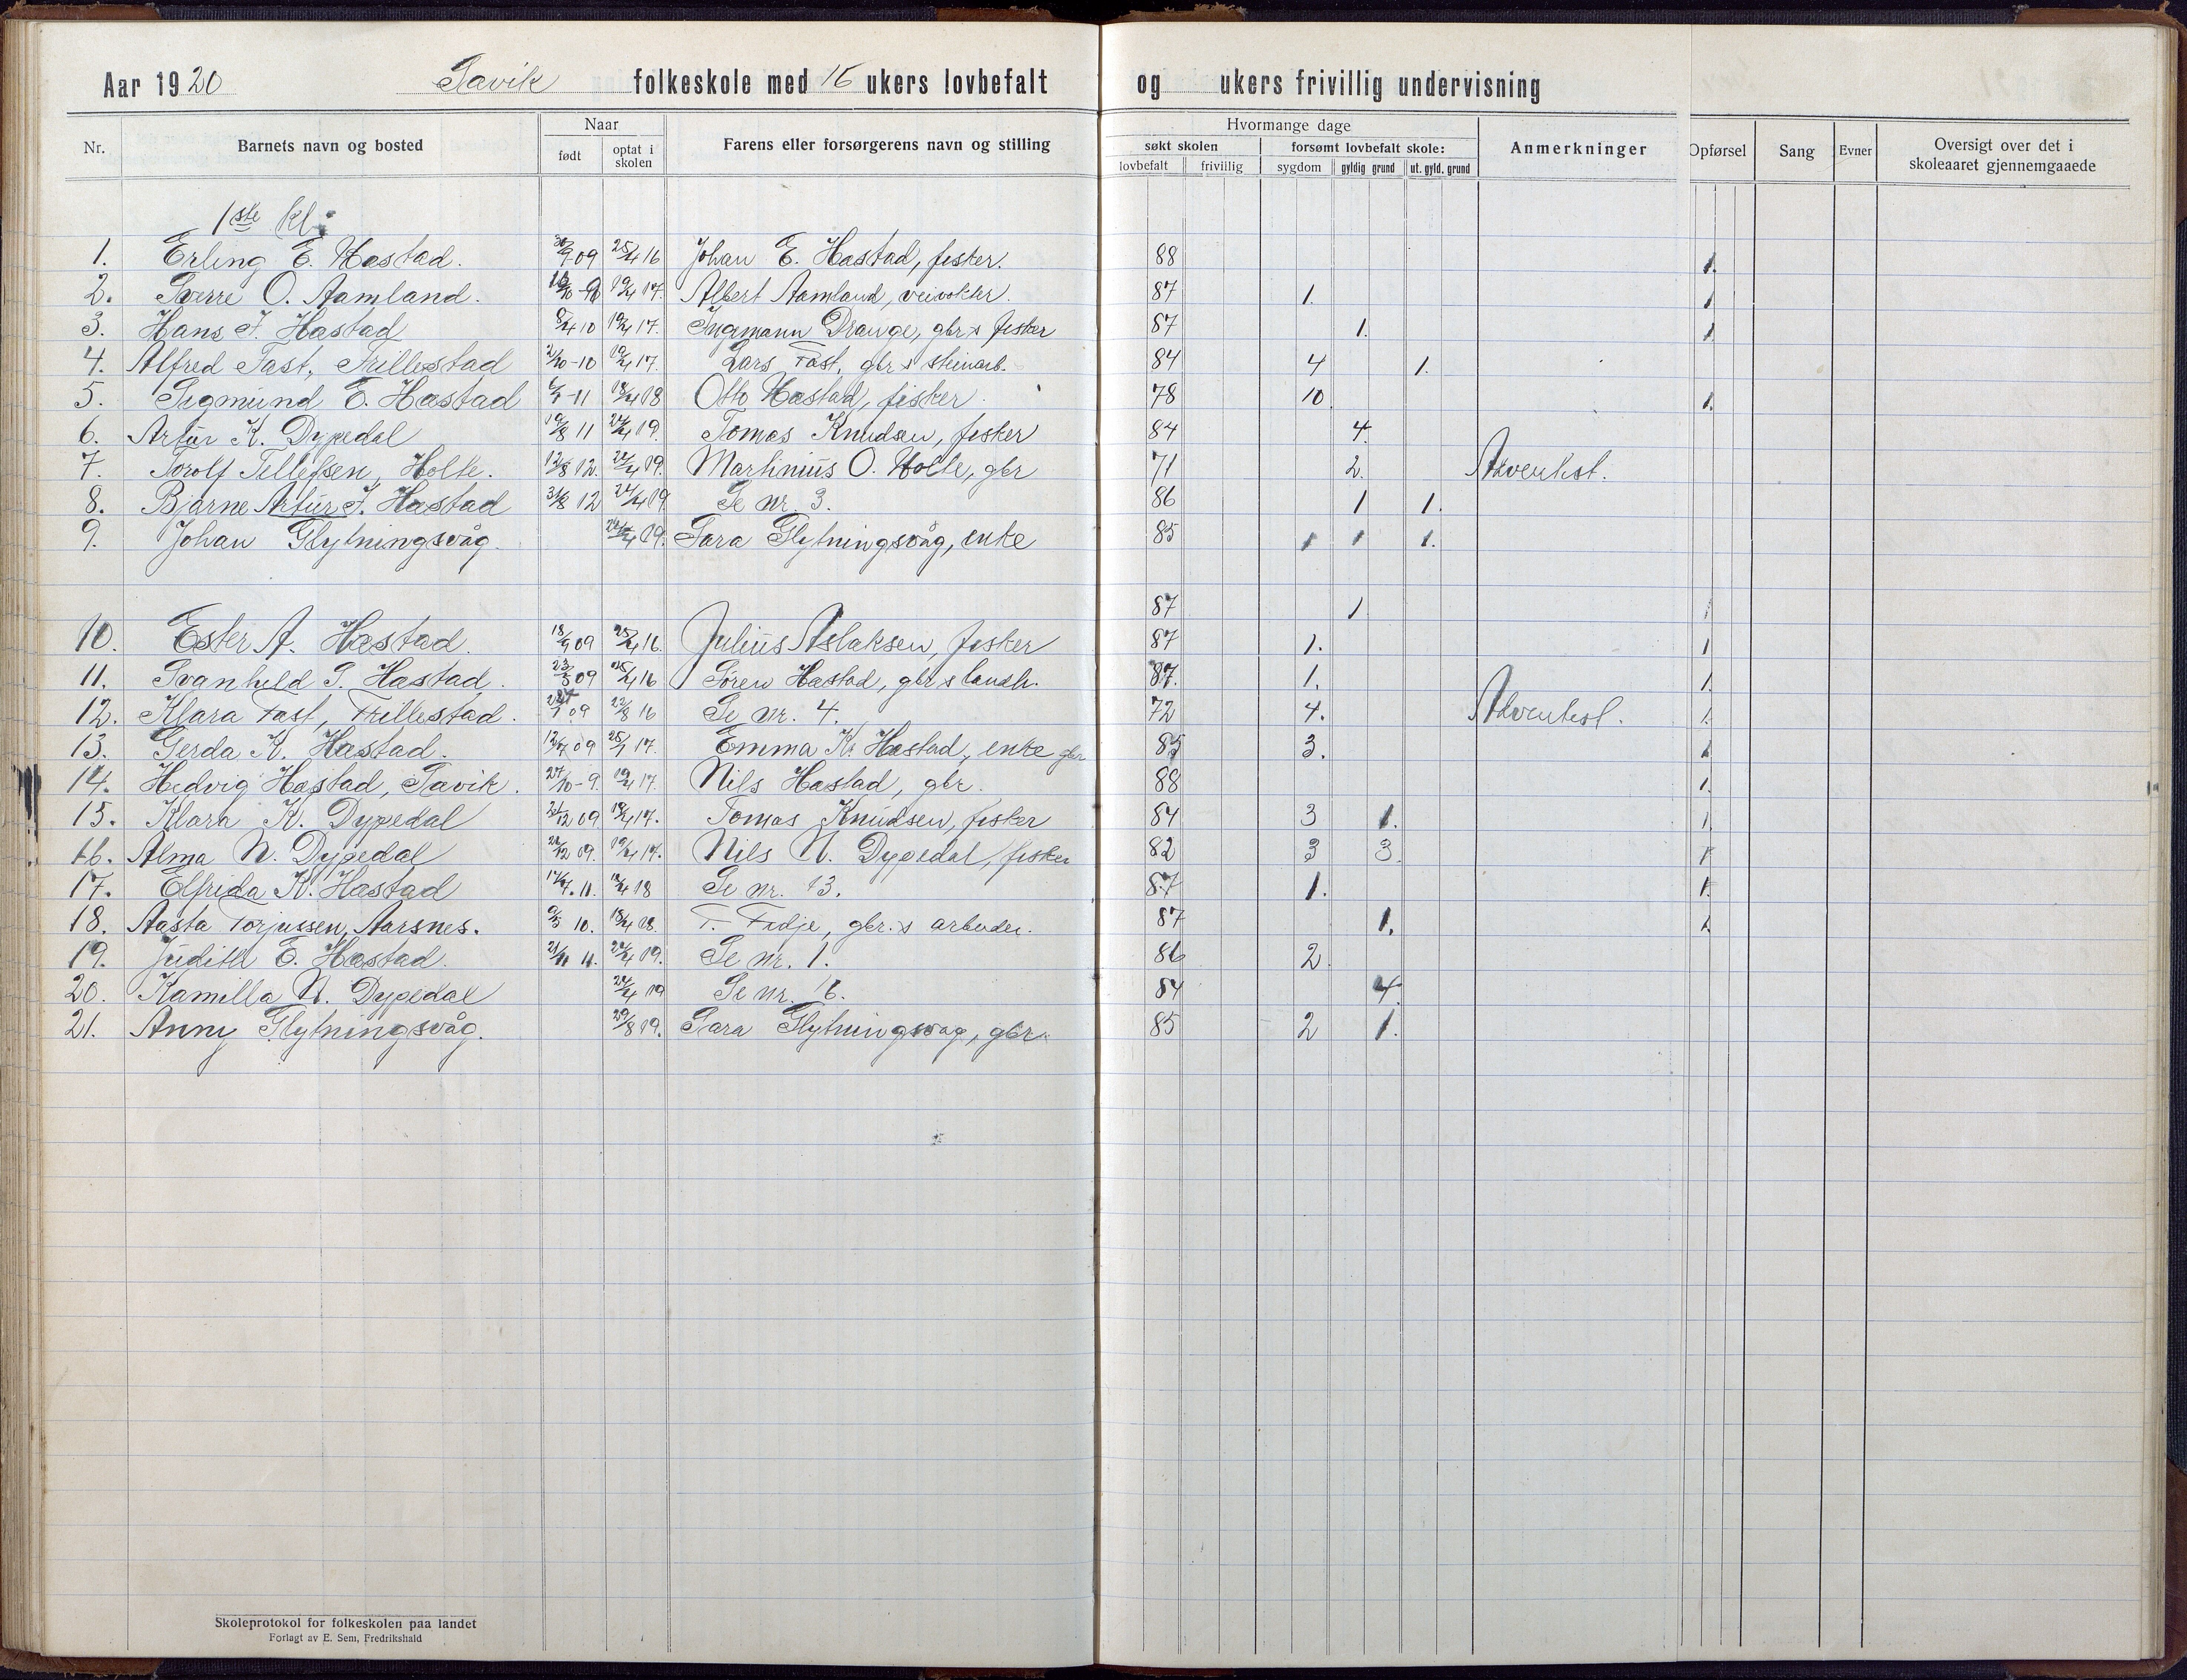 Aar 1920 Savik folkeskole med 16 ukers lovbefalt og ukers frivillig undervisning
Nr. Barnets navn og bosted Naar født optat i skolen Farens eller forsørgerens navn og stilling Hvormange dage søkt skolen lovbefalt frivillig forsømt lovbefalt skole: sygdom gyldig grund ut. gyld. grund Anmerkninger Opførsel Sang Evner Oversigt over det i skoleaaret gjennemgaaede
1ste kl:
1. Erling E. Hastad. 30/9 09 25/4 16 Johan E. Hastad, fisker. 88 1.
2. Sverre O. Aamland. 19/4 17. Albert Aamland, veivokter. 87 1. 1
3. Hans J. Hastad 8/4 10 19/4 17. Ingmann Drange, gbr. & fisker 87 1. 1
4. Alfred Tast, Trillestad 2/10-10 19/4 17. Lars Tast, gbr. & steinarb. 84 4 1.
5. Sigmund E. Hastad 6/7-11 18/4 18 Otto Hastad, fisker. 78 10 1.
6. Artur K. Dypedal 19/8 11 24/4 19. Tomas Knudsen, fisker 84 4.
7. Torolf Tellefsen, Holte. 12/8 12. 24/4 19. Martinius O. Holte, gbr 71 2. Adventist.
8. Bjarne Artur J. Hastad 31/8 12 24/4 19. Se nr. 3. 86 1 1.
9. Johan Glytningsvåg. 24/4 19. Sara Glytningsvåg, enke 85 1 1 1.
87 1. 1
10. Ester A. Hastad. 18/9 09 25/4 16. Julius Aslaksen, fisker 87 1. 1
11. Svanhild S. Hastad. 23/3 09 25/4 16 Søren Hastad, gbr. & landh. 87. 1. 1.
12. Klara Tast, Trillestad. 09 22/8 16 Se nr. 4. 72 4. Adventist. 1.
13. Gerda K. Hastad. 12/7 09 25/1 17. Emma K. Hastad, enke gbr 85 3. 1
14. Hedvig Hastad, Savik. 27/10-9. 19/4 17. Nils Hastad, gbr. 88 1.
15. Klara K. Dypedal 21/12 09 19/4 17. Tomas Knudsen, fisker 84 3 1. 1
16. Alma N. Dypedal 26/12 09. 19/4 17. Nils N. Dypedal, fisker 82 3 3 1
17. Elfrida K. Hastad 17/7. 11. 18/4 18 Se nr. 13. 87 1. 1.
18. Aasta Torjussen, Aarsnes. 9/5 10. 18/4 18. T. Fidje, gbr. & arbeider. 87 1. 1.
19. Judith E. Hastad. 21/11 11. 24/4 19. Se nr. 1. 86 2.
20. Kamilla N. Dypedal 24/4 19 Se nr. 16. 84 4.
21. Anny Glytningsvåg. 29/8 19. Sara Glytningsvåg, gbr. 85 2 1.
Skoleprotokol for folkeskolen paa landet
Forlagt av E. Sem, Fredrikshald